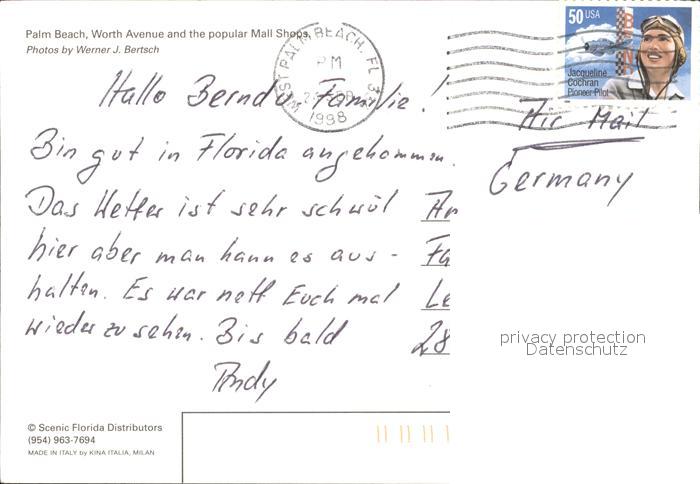 Palm Beach, Worth Avenue and the popular Mall Shops.
Photos by Werner J. Bertsch
WEST PALM BEACH, FL
PM
1998
50 USA
Jacqueline
Cochran
Pioneer Pilot
Hallo Bernd u. Familie!
Air Mail
Germany
Bin gut in Florida angekommen.
Das Wetter ist sehr schwül
hier aber man kann es aus-
halten. Es war nett Euch mal
wieder zu sehen. Bis bald
Andy
An
Fa
Le
28
privacy protection
Datenschutz
© Scenic Florida Distributors
(954) 963-7694
MADE IN ITALY by KINA ITALIA, MILAN